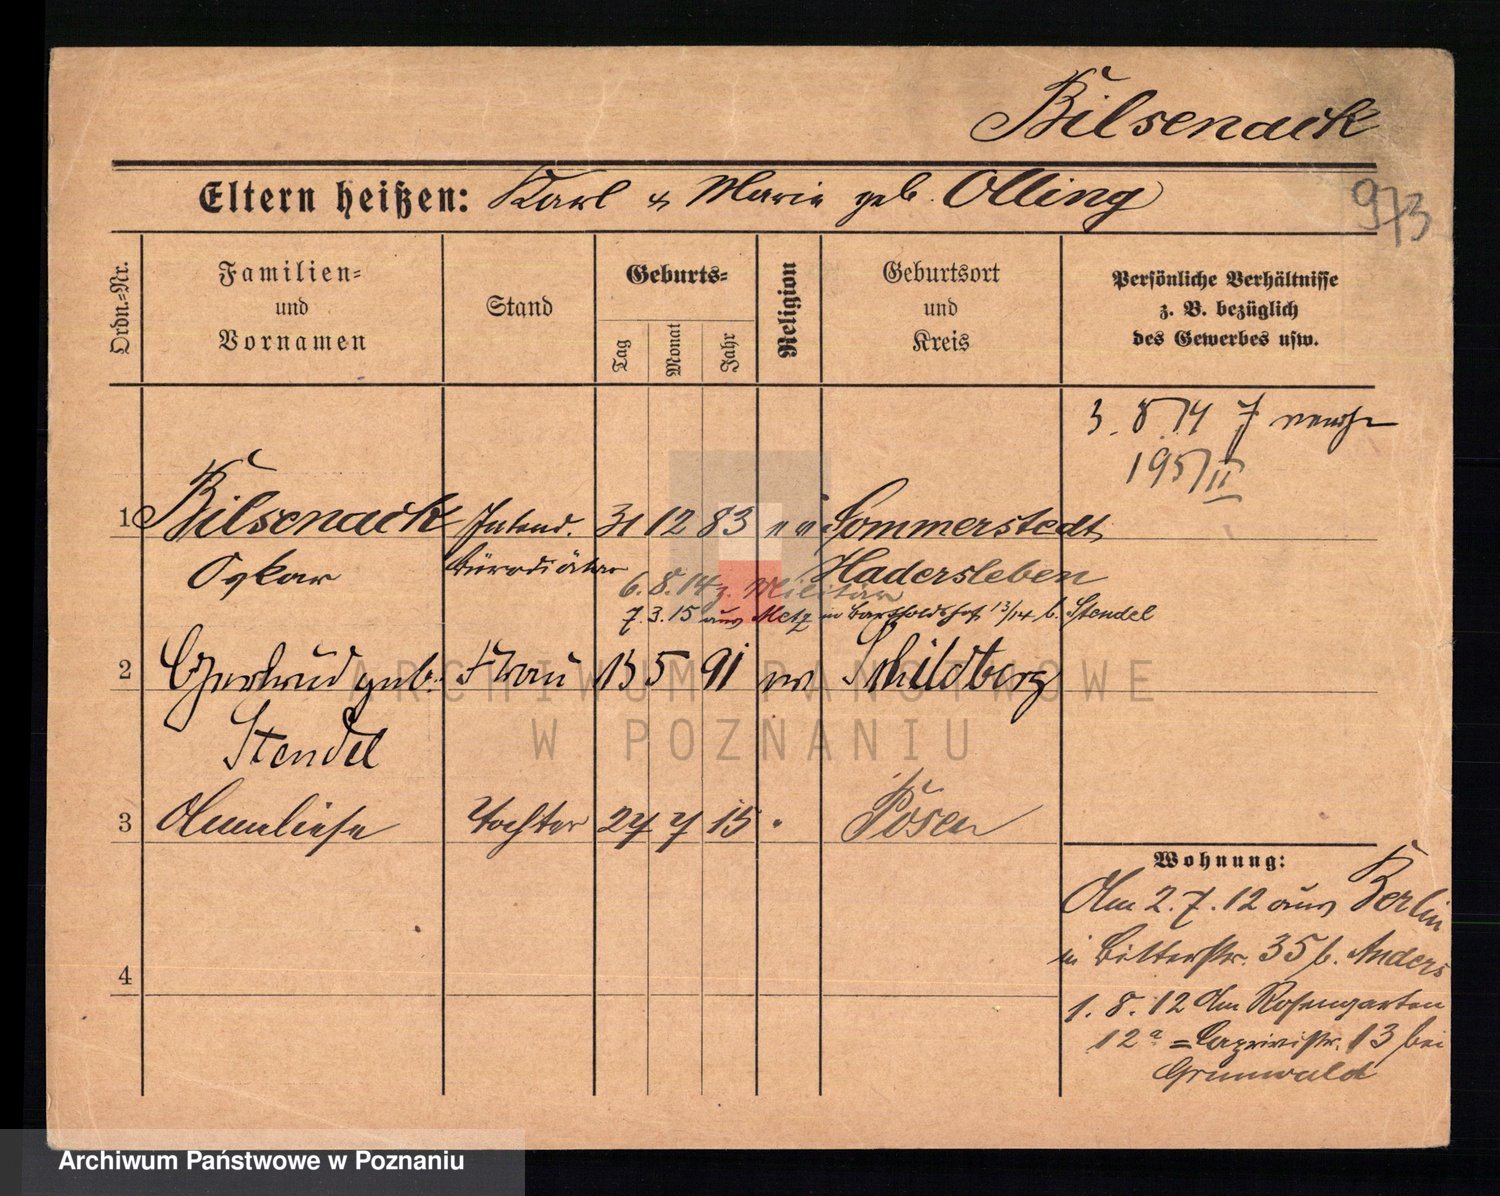 Bilsenack
Eltern heißen: Karl & Marie geb. Olling
973
Ordn.=Nr.
Familien=
und
Vornamen
Stand
Geburts=
Tag
Monat
Jahr
Religion
Geburtsort
und
Kreis
Persönliche Verhältnisse
z. B. bezüglich
des Gewerbes usw.
3. 8. 14
195/II
1 Bilsenack Intend. 31 12 83 Sommerstedt
Oskar Bürodiätar Hadersleben
6. 8. 14 z. Militär
7. 3. 15 aus Metz in Bartholdshof 13/14 b. Stendel
2 Gertrud geb. Frau 13 5 91 ev Schildberg
Stendel
3 Anneliese Tochter 27 7 15 " Posen
4
Wohnung:
Am 2. 7. 12 aus Berlin
in Bitterstr. 35 b. Anders
1. 8. 12 Am Rosengarten
12a = Caprivistr. 13 bei
Grunwald
ARCHIWUM PAŃSTWOWE
W POZNANIU
Archiwum Państwowe w Poznaniu